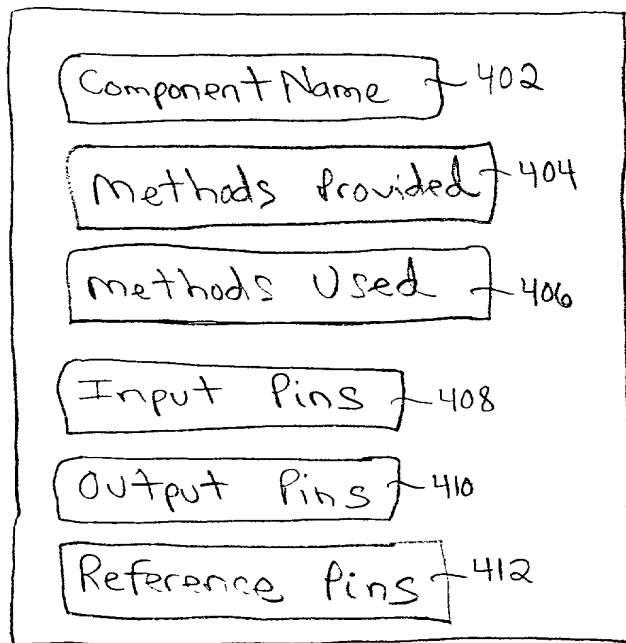 Component Name 402
Methods Provided 404
Methods Used 406
Input Pins 408
Output Pins 410
Reference Pins 412